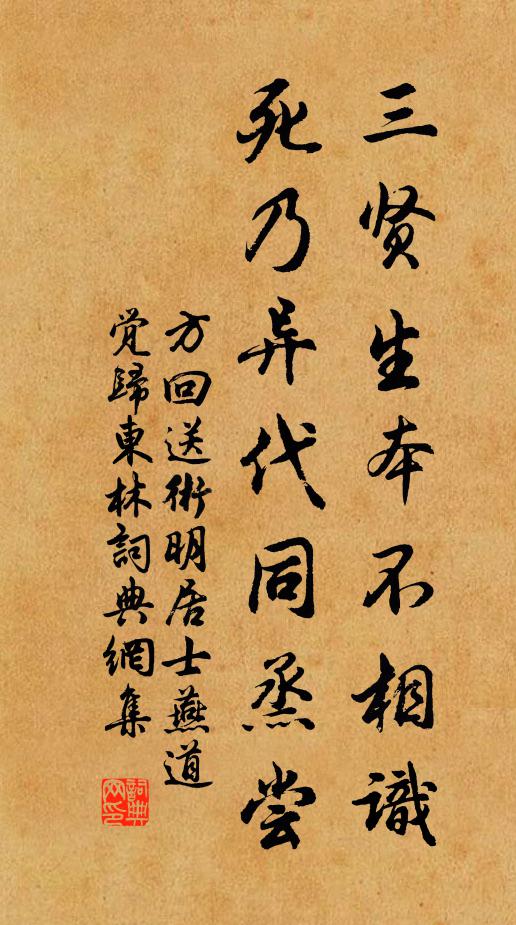 三贤生本不相識
死乃异代同烝尝
方回送術明居士燕道
觉歸東林詞典網集
詞典
网印